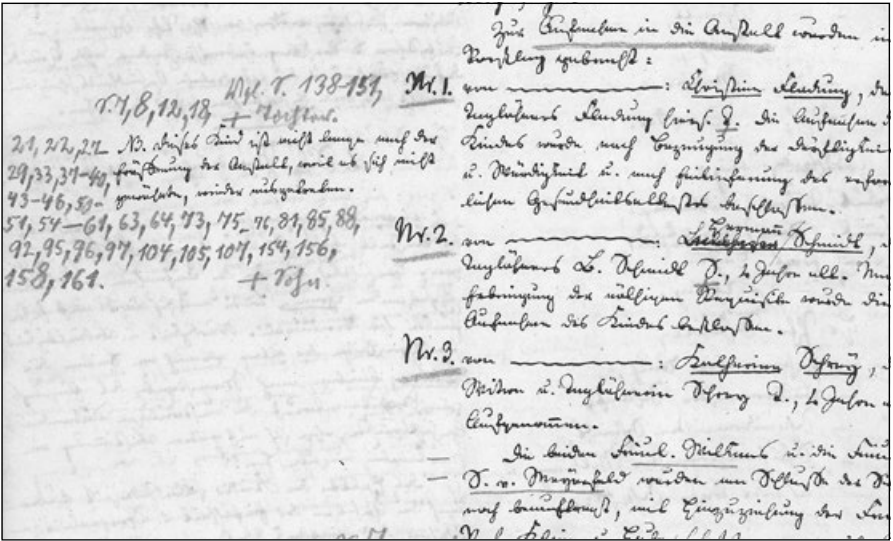 Vgl. S. 138-151,
S. 7, 8, 12, 18, + Tochter.
21, 22, 27 NB. dieses Kind ist nicht lange nach der
29, 33, 37-40, Eröffnung der Anstalt, weil es sich nicht
43-46, 50- gewöhnte, wieder ausgetreten.
51, 54-61, 63, 64, 73, 75, 76, 81, 85, 88,
92, 95, 96, 97, 104, 105, 107, 154, 156,
158, 161. + Sohn.
Zur Aufnahme in die Anstalt wurden in
Vorschlag gebracht:
Nr. 1. von : Christine Fladung,
Taglöhners Fladung hies. T. Die Aufnahme d
Kindes wurde nach Bezeugung der Dürftigkeit
u. Würdigkeit u. nach Einlieferung des erfor
lichen Gesundheitsattestes beschlossen.
Hermann
Nr. 2. von : Schmidt,
Taglöhners B. Schmidt S., 2 Jahre alt. Nach
Erbringung der nöthigen Requisite wurde die
Aufnahme des Kindes beschlossen.
Nr. 3. von : Katharina Schrey,
Witwe u. Taglöhnerin Schrey T., 2 Jahre
Aufgenommen.
Die beiden Fräul. Willms u. die Fräul
S. v. Meyerfeld wurden am Schlusse der
noch beauftragt, mit Hinzuziehung der